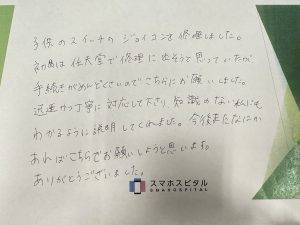 子供のスイッチのジョイコンを修理しました。
初めは任天堂で修理に出そうと思っていたが
手続きがめんどくさいのでこちらにお願いしました。
迅速かつ丁寧に対応して下さり知識のない私にも
わかるように説明してくれました。今後またなにか
あればこちらでお願いしようと思います。
ありがとうございました。
スマホスピタル
SMAHOSPITAL